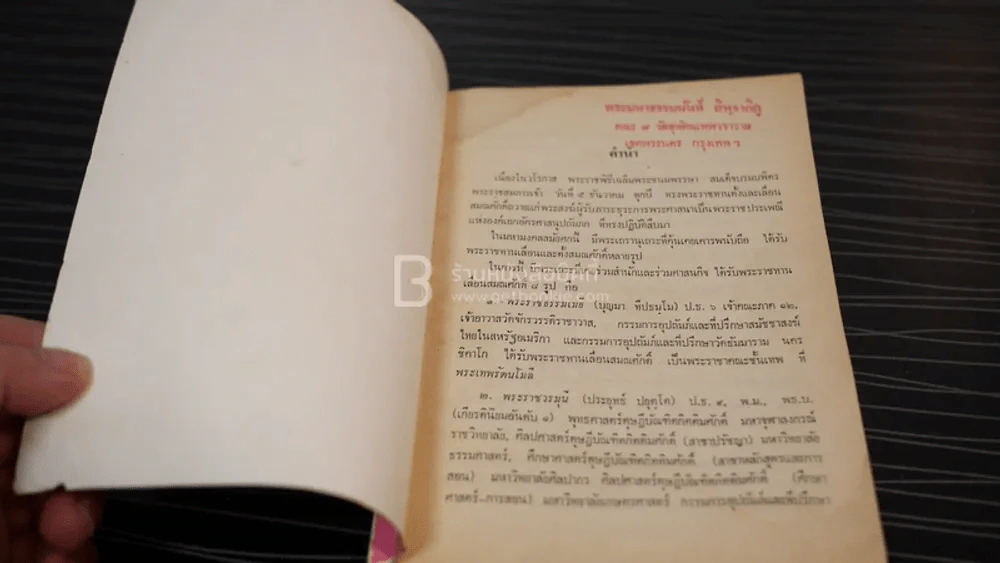 คณะ ๗
กรุงเทพ ฯ
คำนำ
เนื่องในวโรกาส พระราชพิธีเฉลิมพระชนมพรรษา สมเด็จบรมบพิตร
พระราชสมภารเจ้า วันที่ ๕ ธันวาคม ทุกปี ทรงพระราชทานตั้งและเลื่อน
สมณศักดิ์ถวายแก่พระสงฆ์ผู้รับภาระธุระการพระศาสนาเป็นพระราชประเพณี
แห่งองค์เอกอัครศาสนูปถัมภก ที่ทรงปฏิบัติสืบมา
ในมหามงคลสมัยศกนี้ มีพระเถรานุเถระที่คุ้นเคยเคารพนับถือ ได้รับ
พระราชทานเลื่อนและตั้งสมณศักดิ์หลายรูป
ร่วมสำนักและร่วมศาสนกิจ ได้รับพระราชทาน
เลื่อนสมณศักดิ์ ๘ รูป คือ
๑. พระราชธรรมเมธี (บุญมา ทีปธมฺโม) ป.ธ. ๖ เจ้าคณะภาค ๑๒,
เจ้าอาวาสวัดจักรวรรดิราชาวาส, กรรมการอุปถัมภ์และที่ปรึกษาสมัชชาสงฆ์
ไทยในสหรัฐอเมริกา และกรรมการอุปถัมภ์และที่ปรึกษาวัดธัมมาราม นคร
ชิคาโก ได้รับพระราชทานเลื่อนสมณศักดิ์ เป็นพระราชาคณะชั้นเทพ ที่
พระเทพรัตนโมลี
๒. พระราชวรมุนี (ประยุทธ์ ปยุตฺโต) ป.ธ. ๙, พ.ม., พธ.บ.
(เกียรตินิยมอันดับ ๑) พุทธศาสตร์ดุษฎีบัณฑิตกิตติมศักดิ์ มหาจุฬาลงกรณ์
ราชวิทยาลัย, ศิลปศาสตร์ดุษฎีบัณฑิตกิตติมศักดิ์ (สาขาปรัชญา) มหาวิทยาลัย
ธรรมศาสตร์, ศึกษาศาสตร์ดุษฎีบัณฑิตกิตติมศักดิ์ (สาขาหลักสูตรและการ
สอน) มหาวิทยาลัยศิลปากร ศิลปศาสตร์ดุษฎีบัณฑิตกิตติมศักดิ์ (ศึกษา
ศาสตร์-การสอน) มหาวิทยาลัยเกษตรศาสตร์ กรรมการอุปถัมภ์และที่ปรึกษา
B
www.getbookie.com